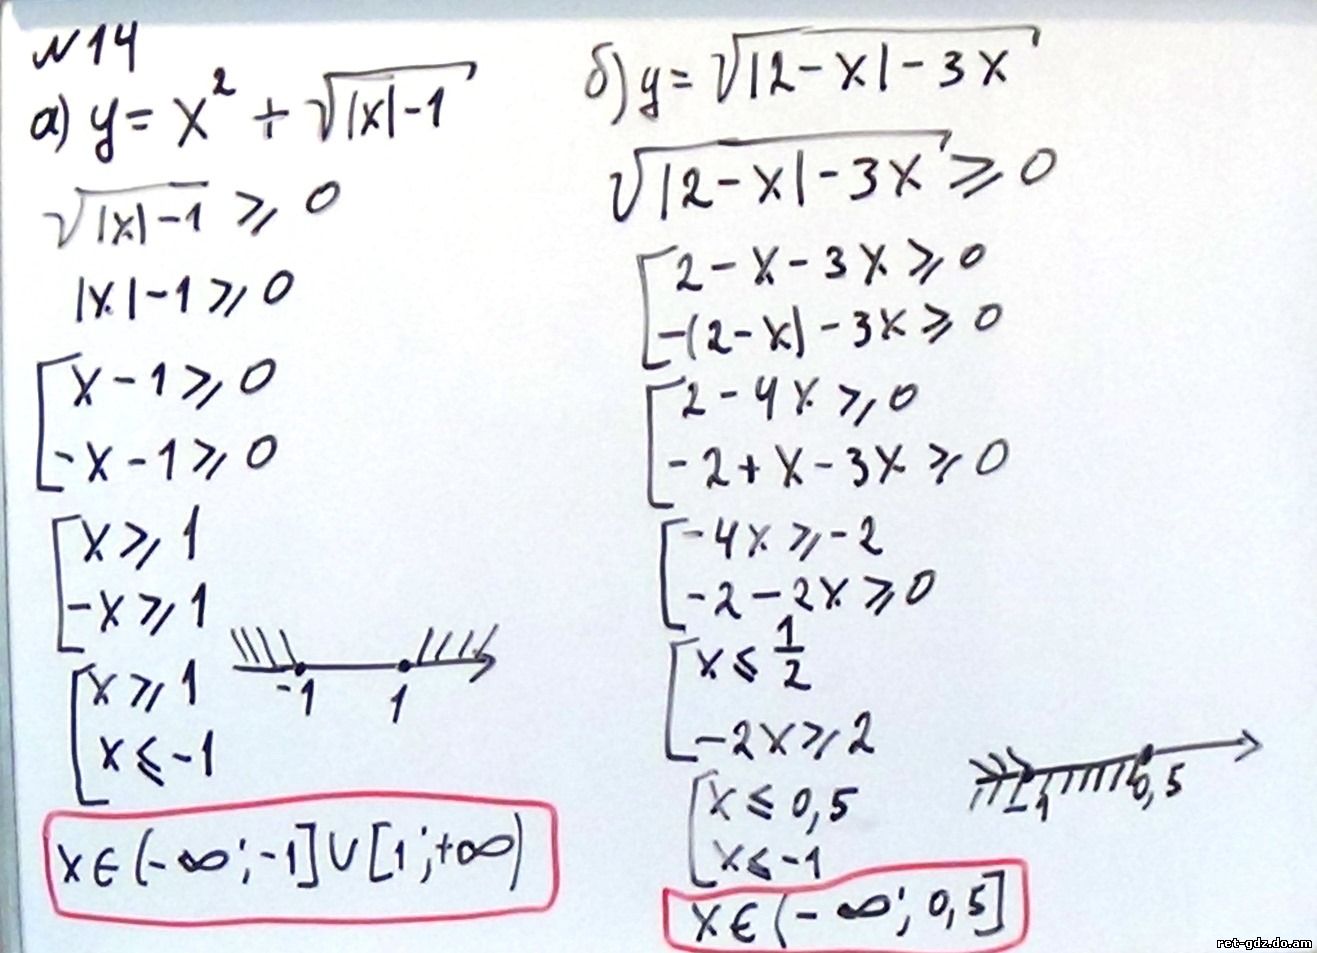 №14
а) y = x² + √(|x|-1)
√(|x|-1) ⩾ 0
|x|-1 ⩾ 0
[ x-1 ⩾ 0
-x-1 ⩾ 0
[ x ⩾ 1
-x ⩾ 1
[ x ⩾ 1
x ⩽ -1
-1 1
x ∈ (-∞; -1] ∪ [1; +∞)
б) y = √(|2-x|-3x)
√(|2-x|-3x) ⩾ 0
[ 2-x-3x ⩾ 0
-(2-x)-3x ⩾ 0
[ 2-4x ⩾ 0
-2+x-3x ⩾ 0
[ -4x ⩾ -2
-2-2x ⩾ 0
[ x ⩽ 1/2
-2x ⩾ 2
[ x ⩽ 0,5
x ⩽ -1
-1 0,5
x ∈ (-∞; 0,5]
ret-gdz.do.am